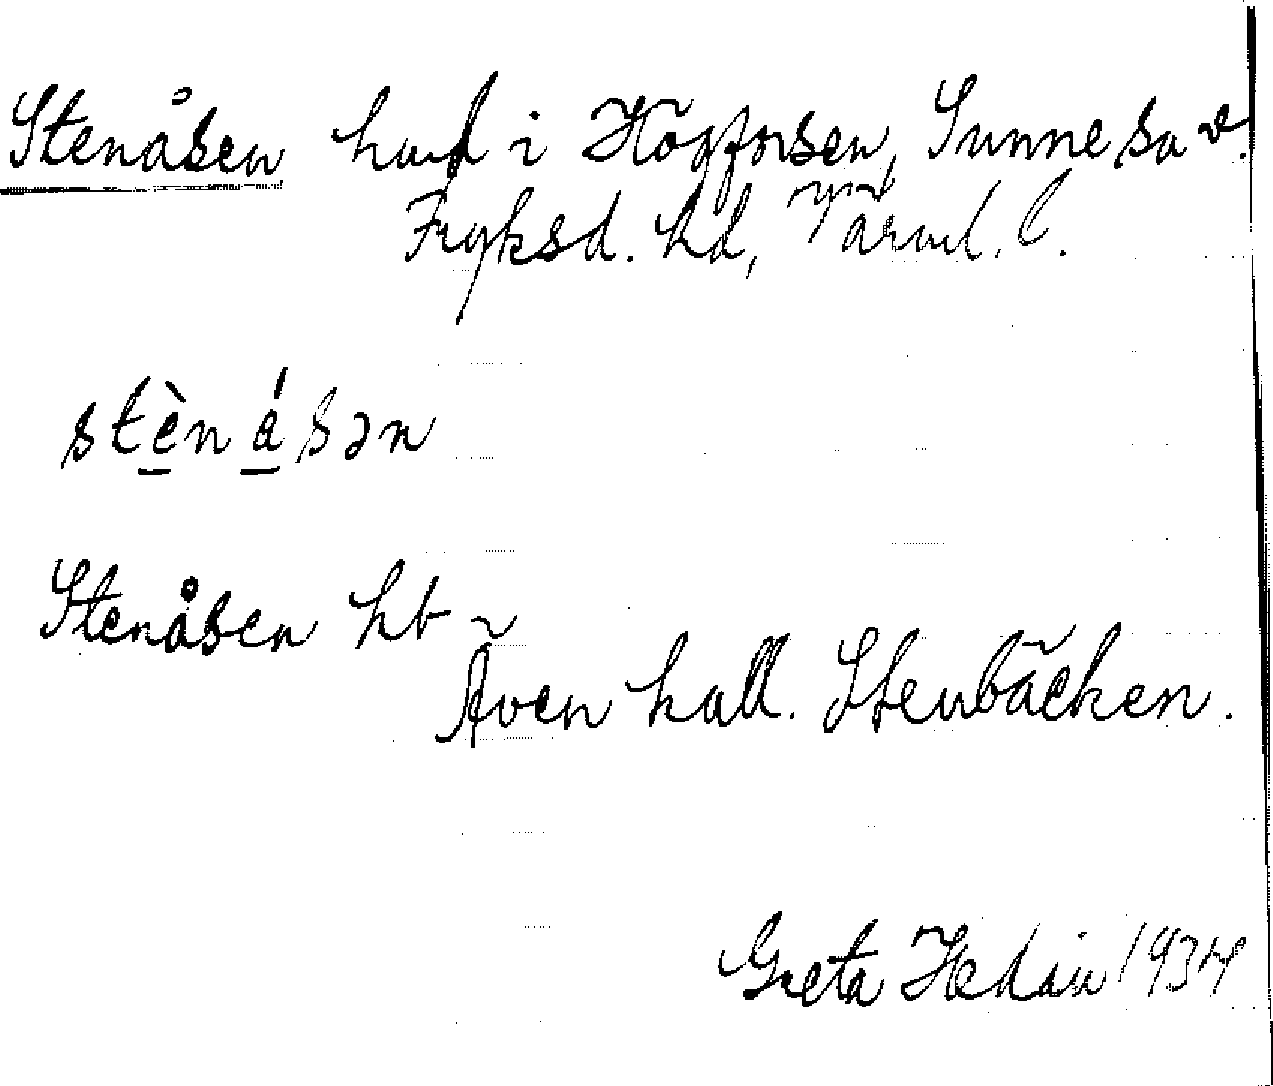 Stenåsen hmd i Högforsen, Sunne sn
Fryksd. hd, Värml. l.
stènásən
Stenåsen hb
Även kall. Stenbäcken.
Greta Hedin 1934